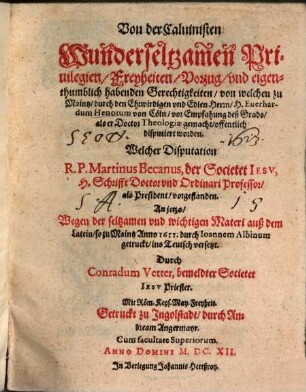 Von der Caluinisten
Wunderseltzamen Pri-
uilegien/ Freyheiten/ Vorzug/ vnd eigen-
thumblich habenden Gerechtigkeiten/ von welchen zu
Maintz/ durch den Ehrwirdigen vnd Edlen Herrn/ H. Euerhar-
dum Henotum von Cöln/ vor Empfahung deß Grads/
als er Doctor Theologiæ gemacht/ offentlich
disputiert worden.
Welcher Disputation
R. P. Martinus Becanus, der Societet IESV,
H. Schrifft Doctor vnd Ordinari Professor/
als President/ vorgestanden.
An jetzo/
Wegen der seltzamen vnd wichtigen Materi auß dem
Latein/ so zu Maintz Anno 1611. durch Ioannem Albinum
getruckt/ ins Teutsch versetzt.
Durch
Conradum Vetter, bemeldter Societet
IESV Priester.
Mit Röm. Keys. May. Freyheit.
Getruckt zu Ingolstadt/ durch An-
dream Angermayr.
Cum facultate Superiorum.
ANNO DOMINI M. DC. XII.
In Verlegung Johannis Hertsroy.